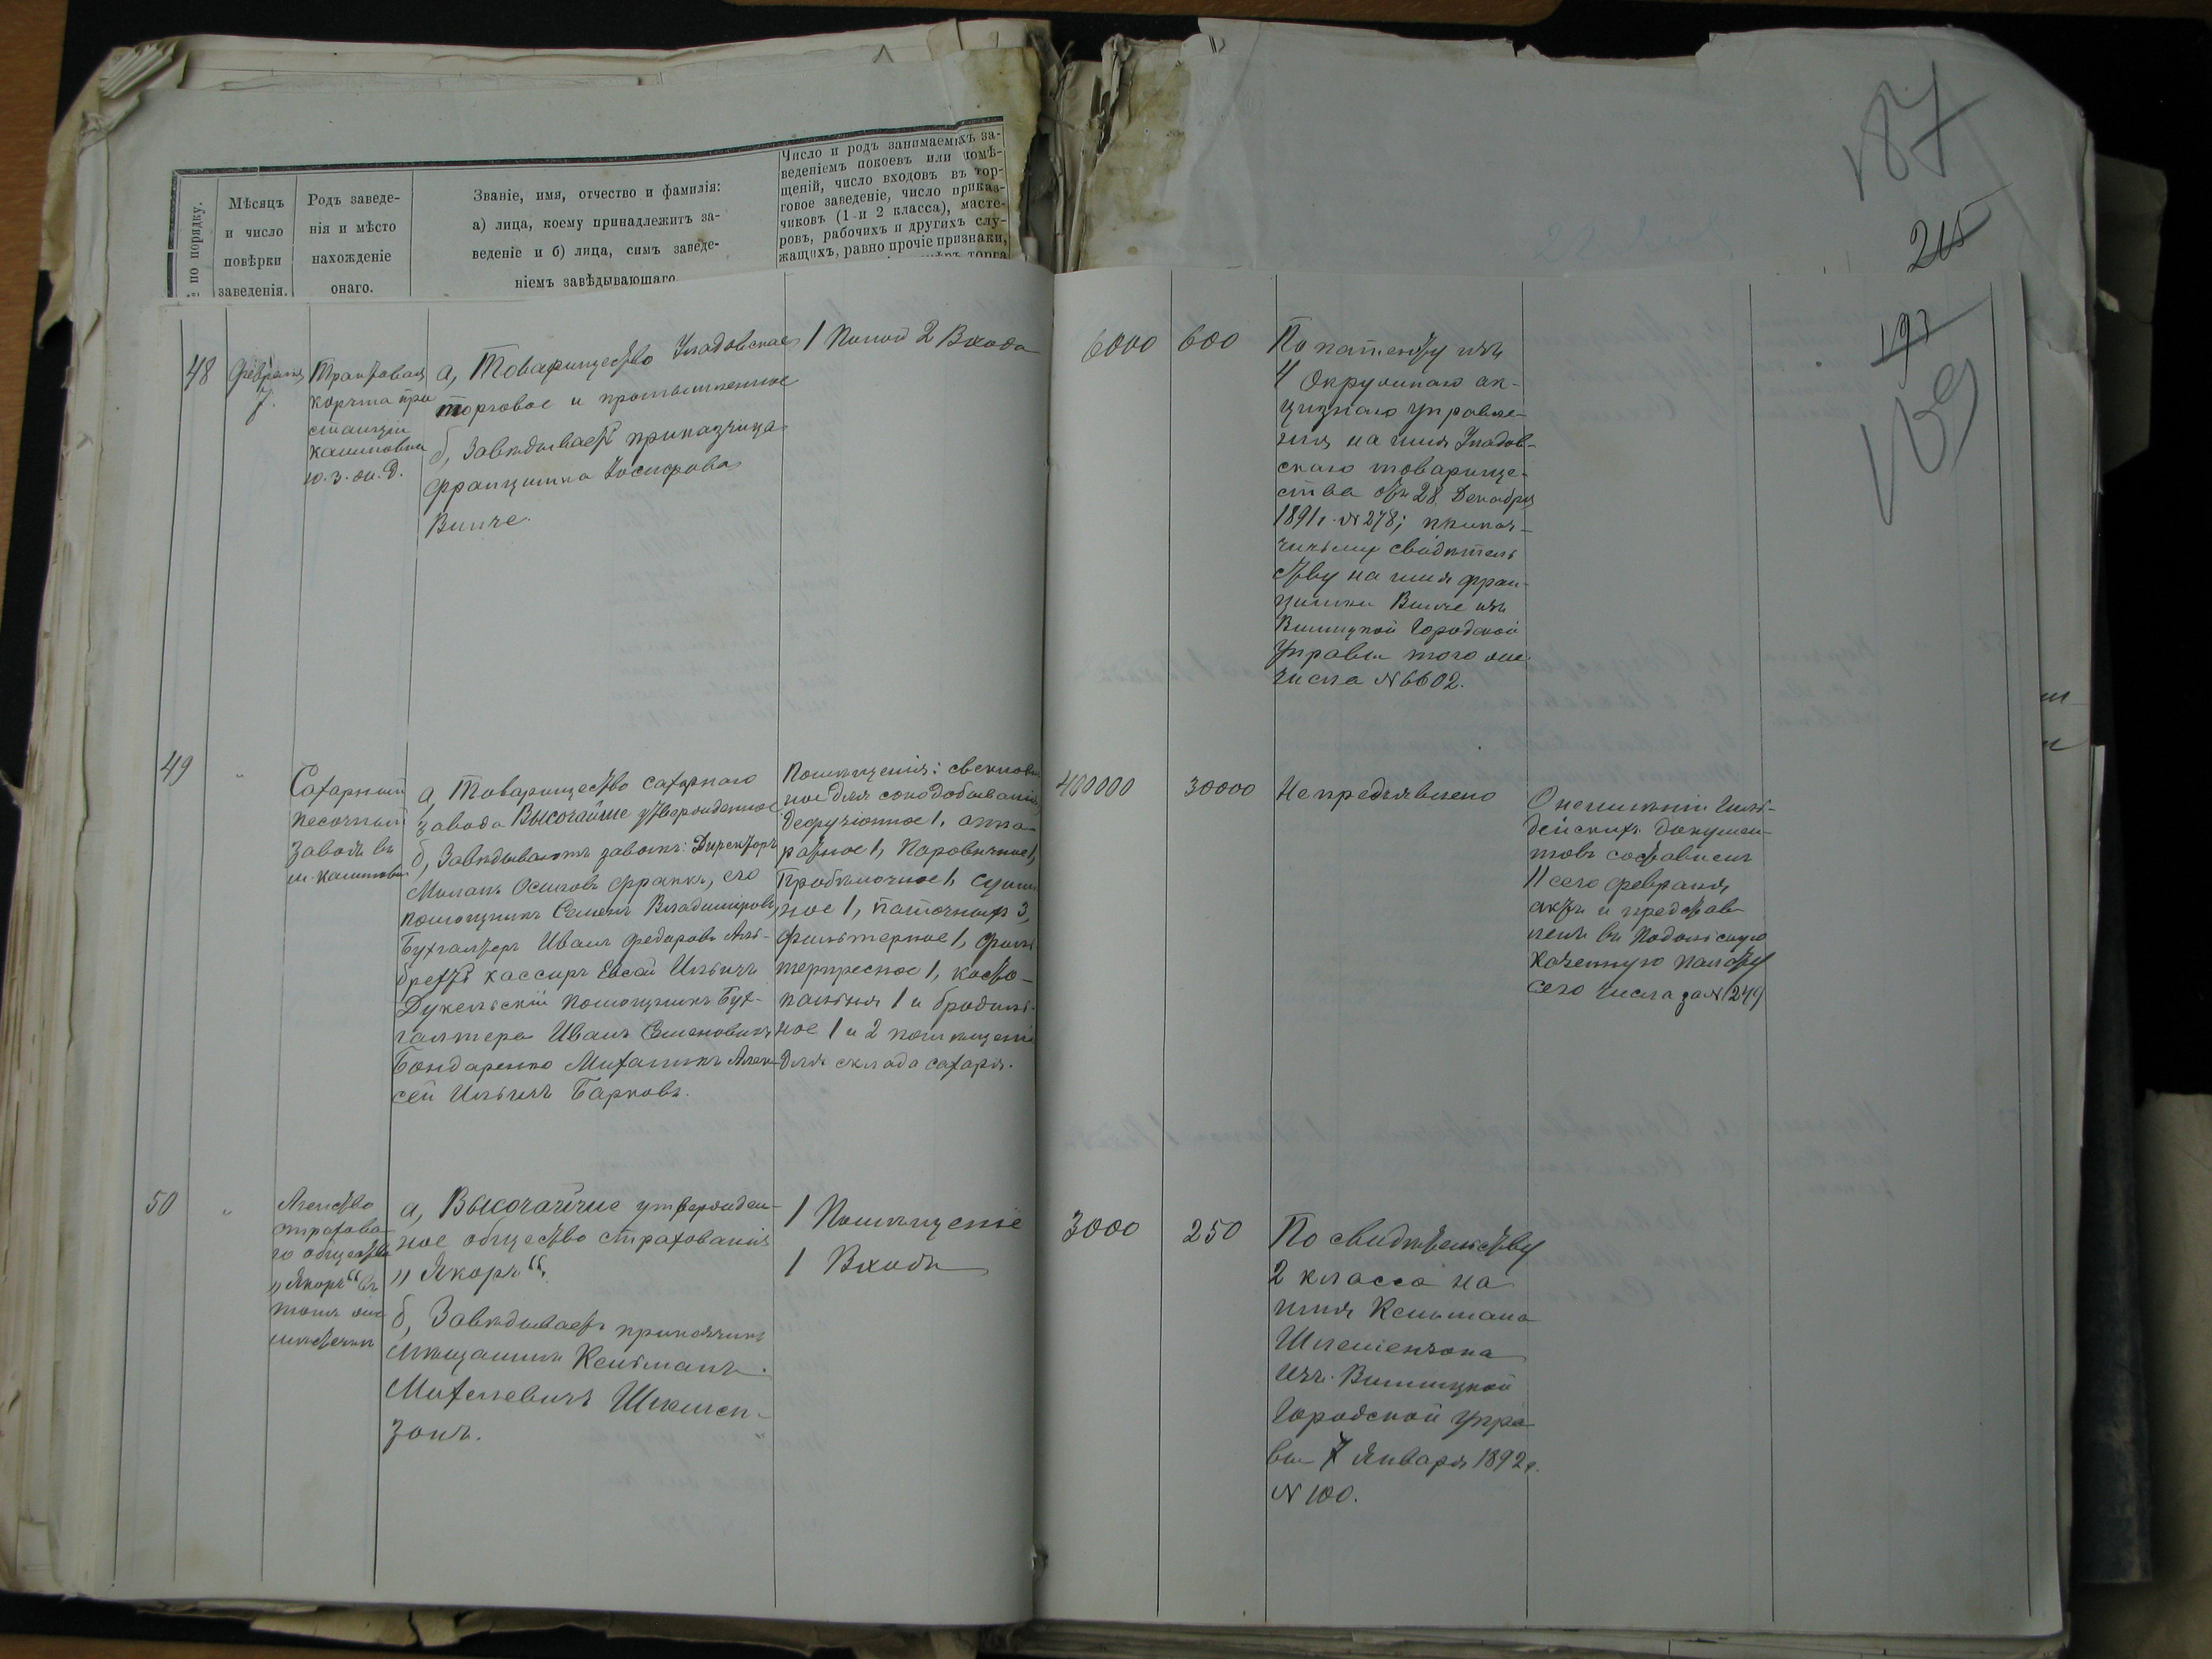 № по порядку.
Мѣсяцъ
и число
повѣрки
заведенія.
Родъ заведе-
нія и мѣсто
нахожденіе
онаго.
Званіе, имя, отчество и фамилія:
а) лица, коему принадлежитъ за-
ведение и б) лица, симъ заведе-
ніемъ завѣдывающаго
Число и родъ занимаемыхъ за-
веденіемъ покоевъ или помѣ-
щеній, число входовъ въ тор-
говое заведеніе, число приказ-
чиковъ (1 и 2 класса), масте-
ровъ, рабочихъ и другихъ слу-
жащихъ, равно прочіе признаки,
торга
187
215
193
139
48
Февраля
7.
Трактовая
корчма при
станціи
Калиновки
ю. з. ж. д.
а, Товарищество Уладовское
торговое и промышленное
б, Завѣдываетъ приказчица
Францишка Іосифова
Винче.
1 Покой 2 Входа
6000
600
По патенту изъ
4 Окружнаго ак-
цизнаго управле-
нія на имя Уладов-
скаго товарище-
ства отъ 28 Декабря
1891 г. № 278; приказ-
чичьему свидѣтель
ству на имя Фран-
цишки Винче изъ
Винницкой Городской
Управы того же
числа № 6602.
49
"
Сахарный
песочный
заводъ въ
м. Калиновки
а, Товарищество сахарнаго
завода Высочайше утвержденное
б, Завѣдываютъ завомъ: Директоръ
Миланъ Осиповъ Франкъ, его
помощникъ Семенъ Владимировъ,
Бухгалтеръ Иванъ Федоровъ Аль-
брехтъ кассиръ Евсей Ильичъ
Дукельскій помощникъ Бух-
галтера Иванъ Семеновичъ
Бондаренко Механикъ Алек-
сей Ильичъ Барковъ.
Помѣщенія: свеклович
ное для сокодобыванія,
дефузіонное 1, аппа-
ратное 1, Паровичное 1,
Пробѣлочное 1, сушил
ное 1, паточныхъ 3,
фильтерное 1, филь
терпресное 1, косто-
пальня 1 и бродиль-
ное 1 и 2 помѣщенія
для склада сахара.
400000
30000
Не предъявлено
О неимѣніи Гиль-
дейскихъ докумен-
товъ составленъ
11 сего февраля
актъ и представ
ленъ въ Подольскую
Казенную палату
сего числа за № 1249
50
"
Агенство
страхова-
го общества
„Якорь“ въ
томъ же
мѣстечкѣ
а, Высочайше утвержден-
ное общество страхованія
„Якорь“.
б, Завѣдываетъ приказчикъ
мѣщанинъ Кельманъ
Михелевичъ Шлемен-
зонъ.
1 Помѣщеніе
1 Входъ
3000
250
По свидѣтельству
2 класса на
имя Кельмана
Шлемензона
изъ Винницкой
Городской Упра
вы 7 Января 1892 г.
№ 100.